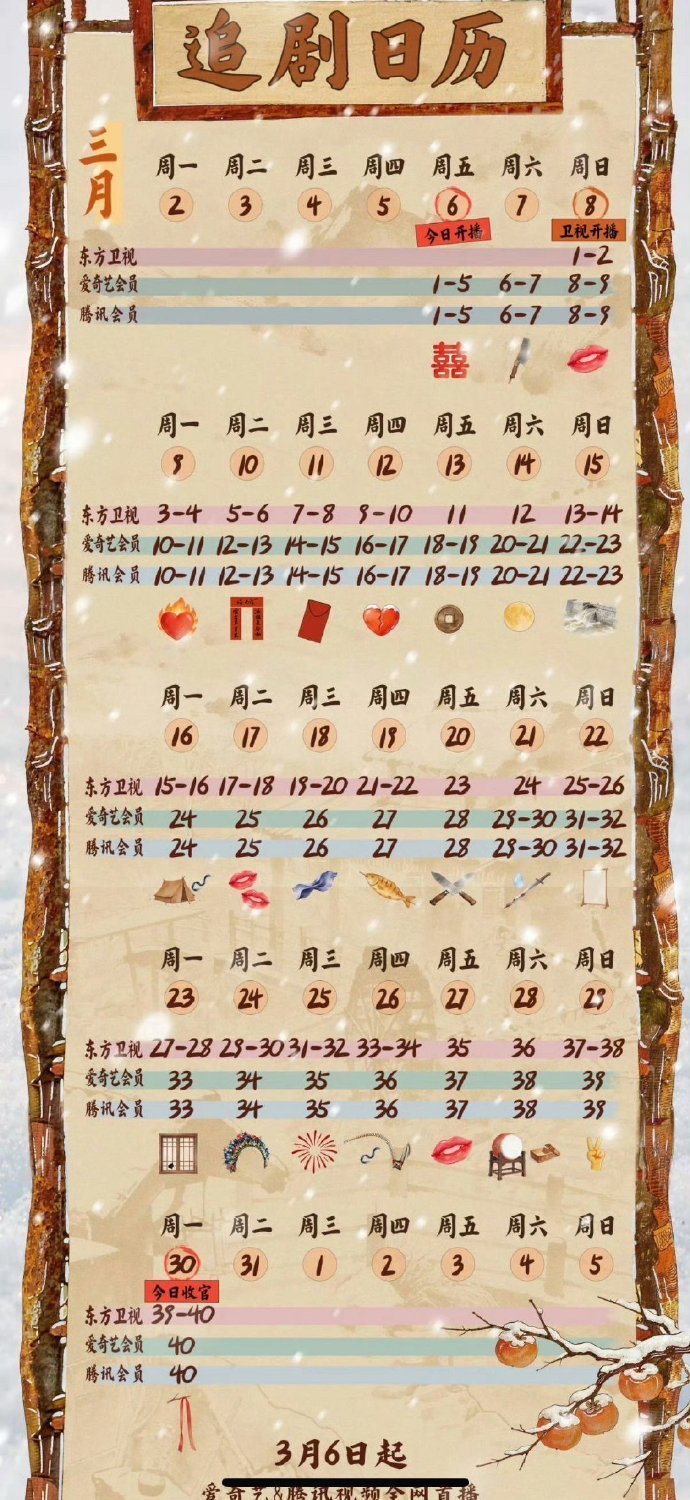 追剧日历
三月
周一 周二 周三 周四 周五 周六 周日
2 3 4 5 6 7 8
今日开播 卫视开播
东方卫视 1-2
爱奇艺会员 1-5 6-7 8-9
腾讯会员 1-5 6-7 8-9
囍
周一 周二 周三 周四 周五 周六 周日
9 10 11 12 13 14 15
东方卫视 3-4 5-6 7-8 9-10 11 12 13-14
爱奇艺会员 10-11 12-13 14-15 16-17 18-19 20-21 22-23
腾讯会员 10-11 12-13 14-15 16-17 18-19 20-21 22-23
周一 周二 周三 周四 周五 周六 周日
16 17 18 19 20 21 22
东方卫视 15-16 17-18 19-20 21-22 23 24 25-26
爱奇艺会员 24 25 26 27 28 29-30 31-32
腾讯会员 24 25 26 27 28 29-30 31-32
周一 周二 周三 周四 周五 周六 周日
23 24 25 26 27 28 29
东方卫视 27-28 29-30 31-32 33-34 35 36 37-38
爱奇艺会员 33 34 35 36 37 38 39
腾讯会员 33 34 35 36 37 38 39
周一 周二 周三 周四 周五 周六 周日
30 31 1 2 3 4 5
今日收官
东方卫视 39-40
爱奇艺会员 40
腾讯会员 40
3月6日起
爱奇艺&腾讯视频全网首播